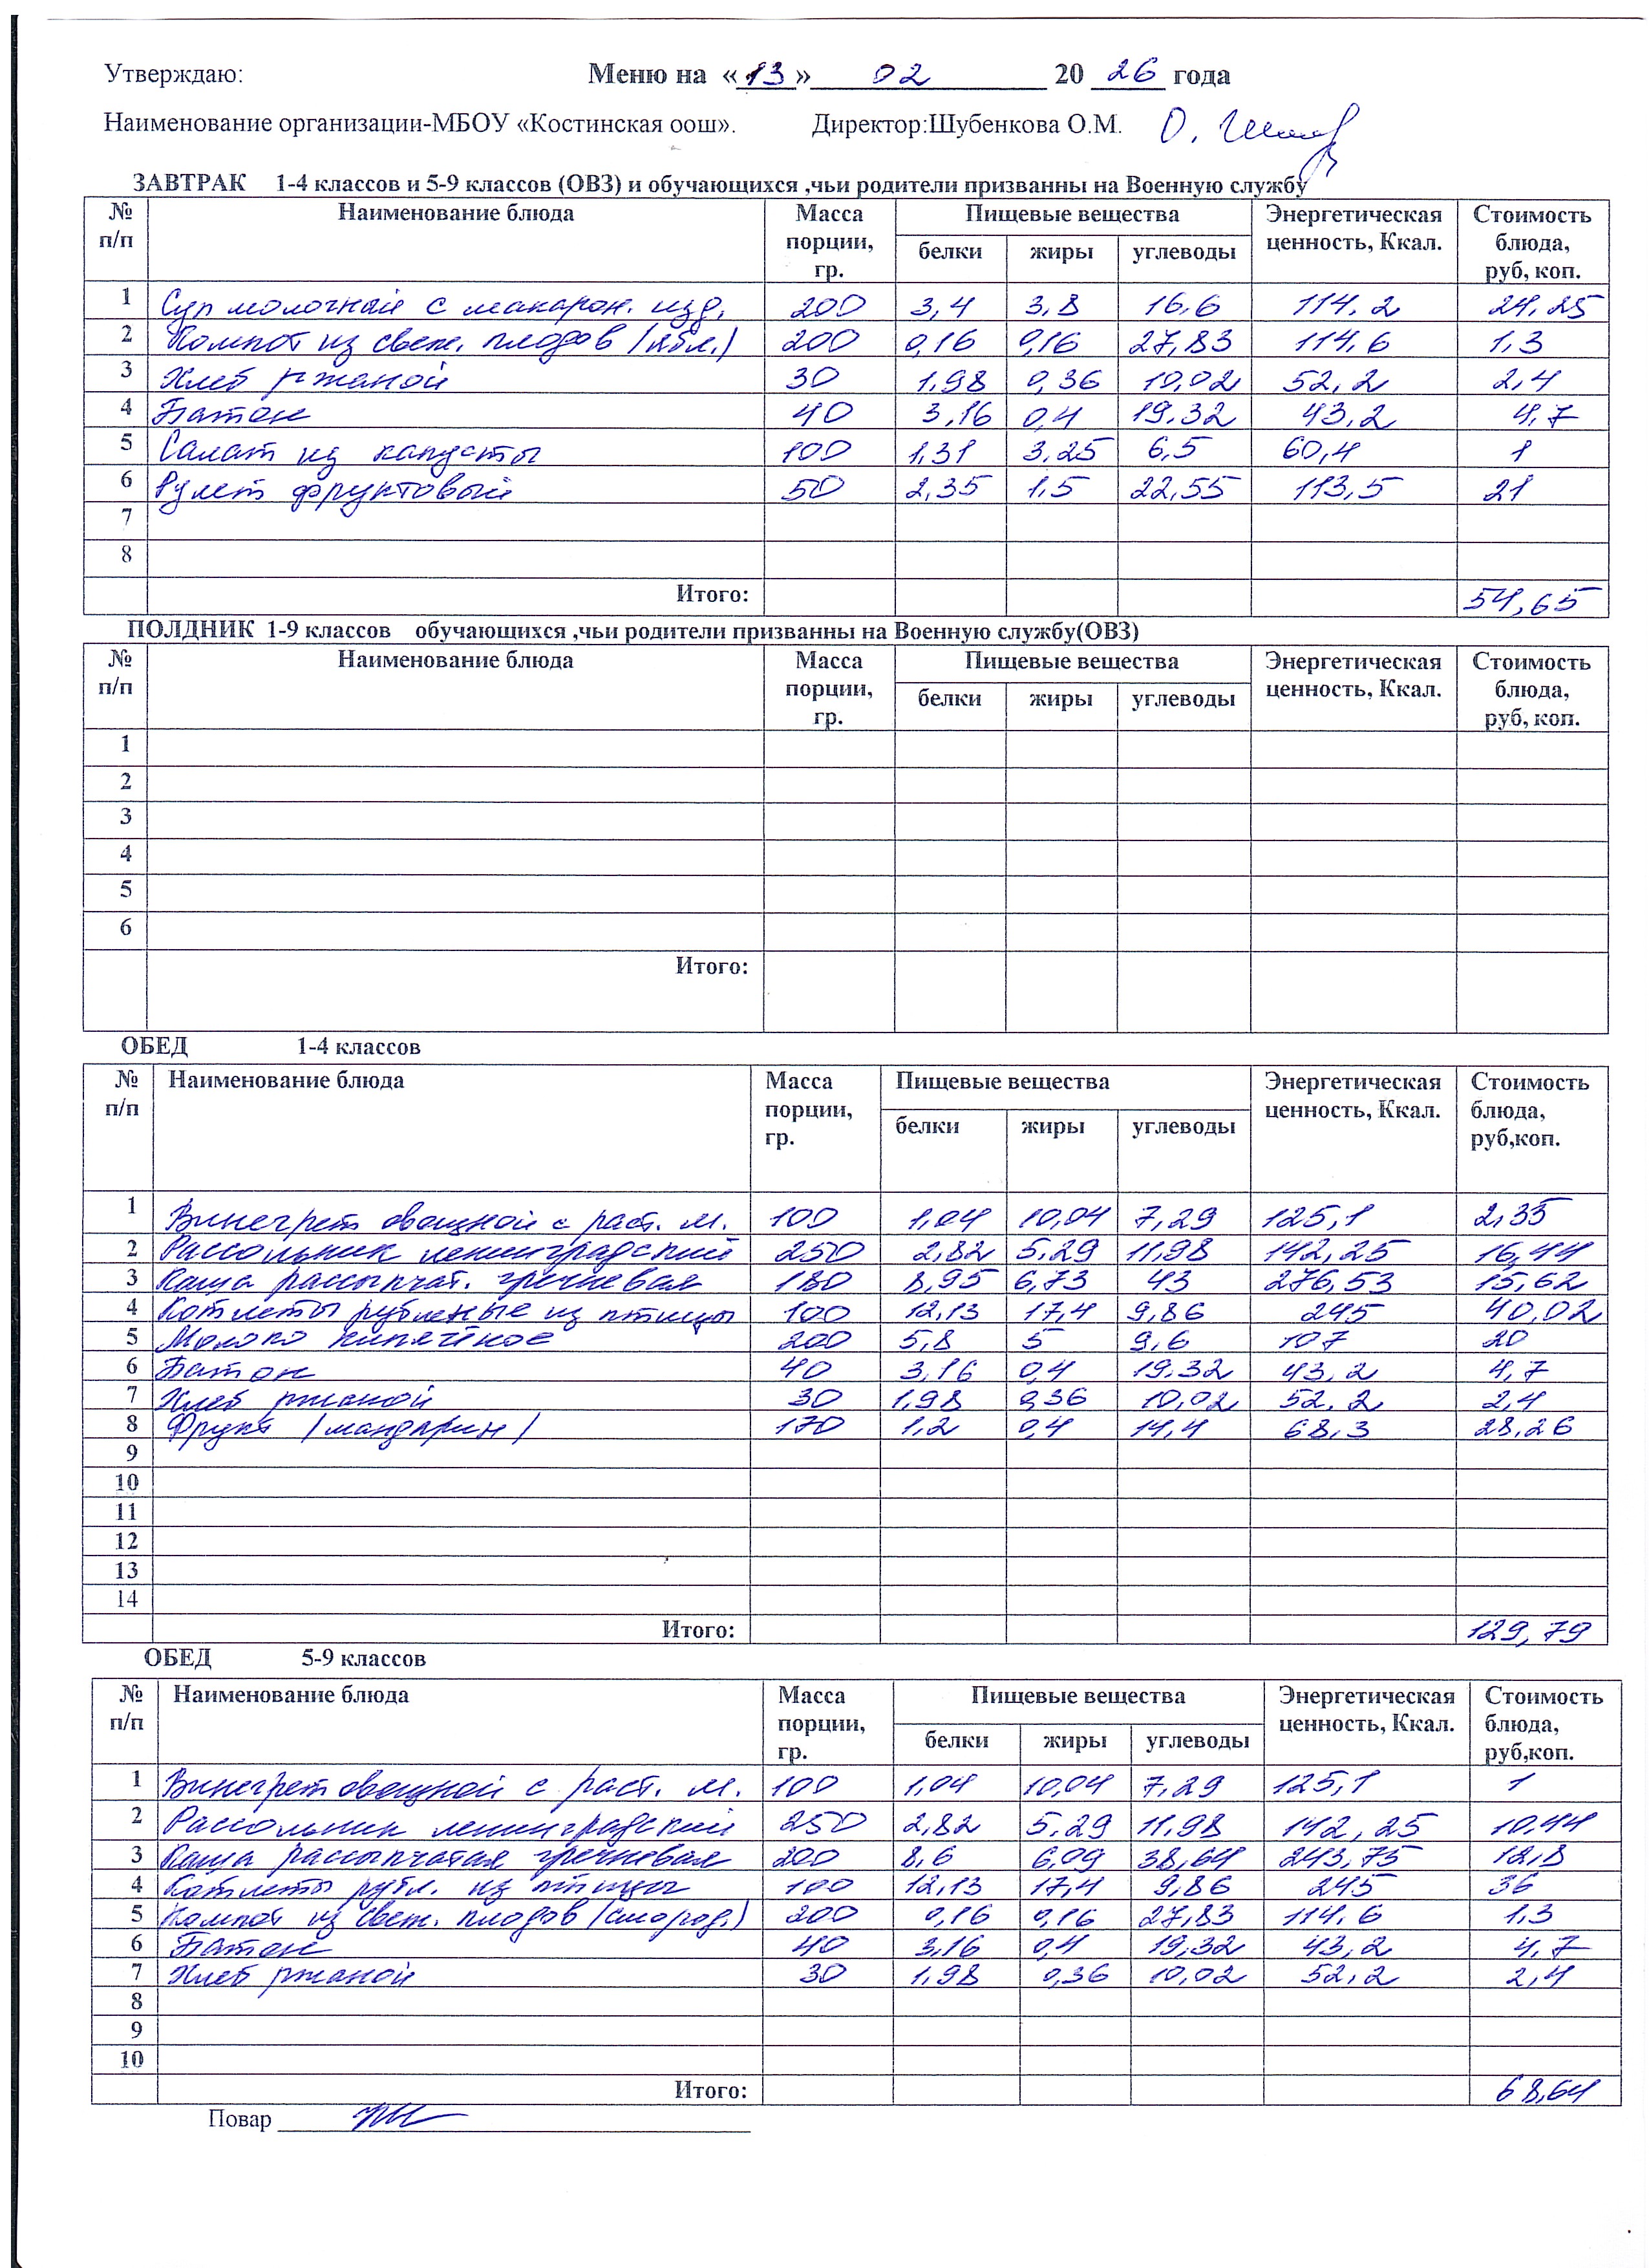 Утверждаю: Меню на «13» 02 20 26 года
Наименование организации-МБОУ «Костинская оош». Директор:Шубенкова О.М.
ЗАВТРАК 1-4 классов и 5-9 классов (ОВЗ) и обучающихся ,чьи родители призванны на Военную службу
№ п/п Наименование блюда Масса порции, гр. Пищевые вещества Энергетическая ценность, Ккал. Стоимость блюда, руб, коп.
белки жиры углеводы
1 Суп молочный с макарон. изд. 200 3,4 3,8 16,6 114,2 24,25
2 Компот из свеж. плодов (ябл.) 200 0,16 0,16 27,83 114,6 1,3
3 Хлеб ржаной 30 1,98 0,36 10,02 52,2 2,4
4 Батон 40 3,16 0,4 19,32 43,2 4,7
5 Салат из капусты 100 1,31 3,25 6,5 60,4 1
6 Рулет фруктовый 50 2,35 1,5 22,55 113,5 21
7
8
Итого: 54,65
ПОЛДНИК 1-9 классов обучающихся ,чьи родители призванны на Военную службу(ОВЗ)
№ п/п Наименование блюда Масса порции, гр. Пищевые вещества Энергетическая ценность, Ккал. Стоимость блюда, руб, коп.
белки жиры углеводы
1
2
3
4
5
6
Итого:
ОБЕД 1-4 классов
№ п/п Наименование блюда Масса порции, гр. Пищевые вещества Энергетическая ценность, Ккал. Стоимость блюда, руб,коп.
белки жиры углеводы
1 Винегрет овощной с раст. м. 100 1,04 10,04 7,29 125,1 2,35
2 Рассольник ленинградский 250 2,82 5,29 11,98 142,25 16,44
3 Каша рассыпчат. гречневая 180 8,95 6,73 43 276,53 15,62
4 Котлеты рубленые из птицы 100 12,13 17,4 9,86 245 40,02
5 Молоко кипячёное 200 5,8 5 9,6 107 20
6 Батон 40 3,16 0,4 19,32 43,2 4,7
7 Хлеб ржаной 30 1,98 0,36 10,02 52,2 2,4
8 Фрукт (мандарин) 170 1,2 0,4 14,4 68,3 28,26
9
10
11
12
13
14
Итого: 129,79
ОБЕД 5-9 классов
№ п/п Наименование блюда Масса порции, гр. Пищевые вещества Энергетическая ценность, Ккал. Стоимость блюда, руб,коп.
белки жиры углеводы
1 Винегрет овощной с раст. м. 100 1,04 10,04 7,29 125,1 1
2 Рассольник ленинградский 250 2,82 5,29 11,98 142,25 10,44
3 Каша рассыпчатая гречневая 200 8,6 6,09 38,64 243,75 12,8
4 Котлеты рубл. из птицы 100 12,13 17,4 9,86 245 36
5 Компот из свеж. плодов (смород.) 200 0,16 0,16 27,83 114,6 1,3
6 Батон 40 3,16 0,4 19,32 43,2 4,7
7 Хлеб ржаной 30 1,98 0,36 10,02 52,2 2,4
8
9
10
Итого: 68,64
Повар